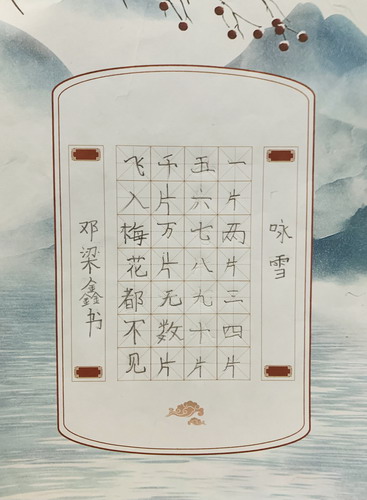 咏雪
一片两片三四片
五六七八九十片
千片万片无数片
飞入梅花都不见
邓梁鑫书